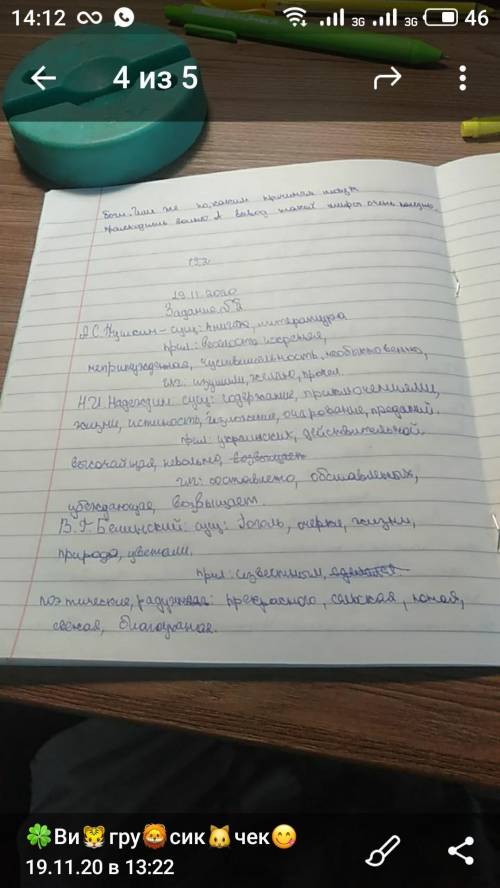 14:12
3G
3G
46
4 из 5
же по каким причинам
очень
19.11.2020
Задание №2
А.С. Пушкин - сущ: книга, литература
прил: веселость искренняя,
непринужденная, чувствительность, необыкновенно,
гл: изумили, желаю, прочел
Н.И. Надеждин сущ: содержание, приключениями,
жизни, истинность, изложение, очарование, преданий.
прил: украинских, действительной,
высочайшая, невольно, возвышает
гл: составлено, обставленных,
убеждающая, возвышает.
В.Г. Белинский сущ: Гоголь, очерки, жизни,
природа,
прил: известным,
поэтические, радужная: прекрасного, сельская,
свежая,
🍀Ви🐯гру🦁сик🐱чек😋
19.11.20 в 13:22